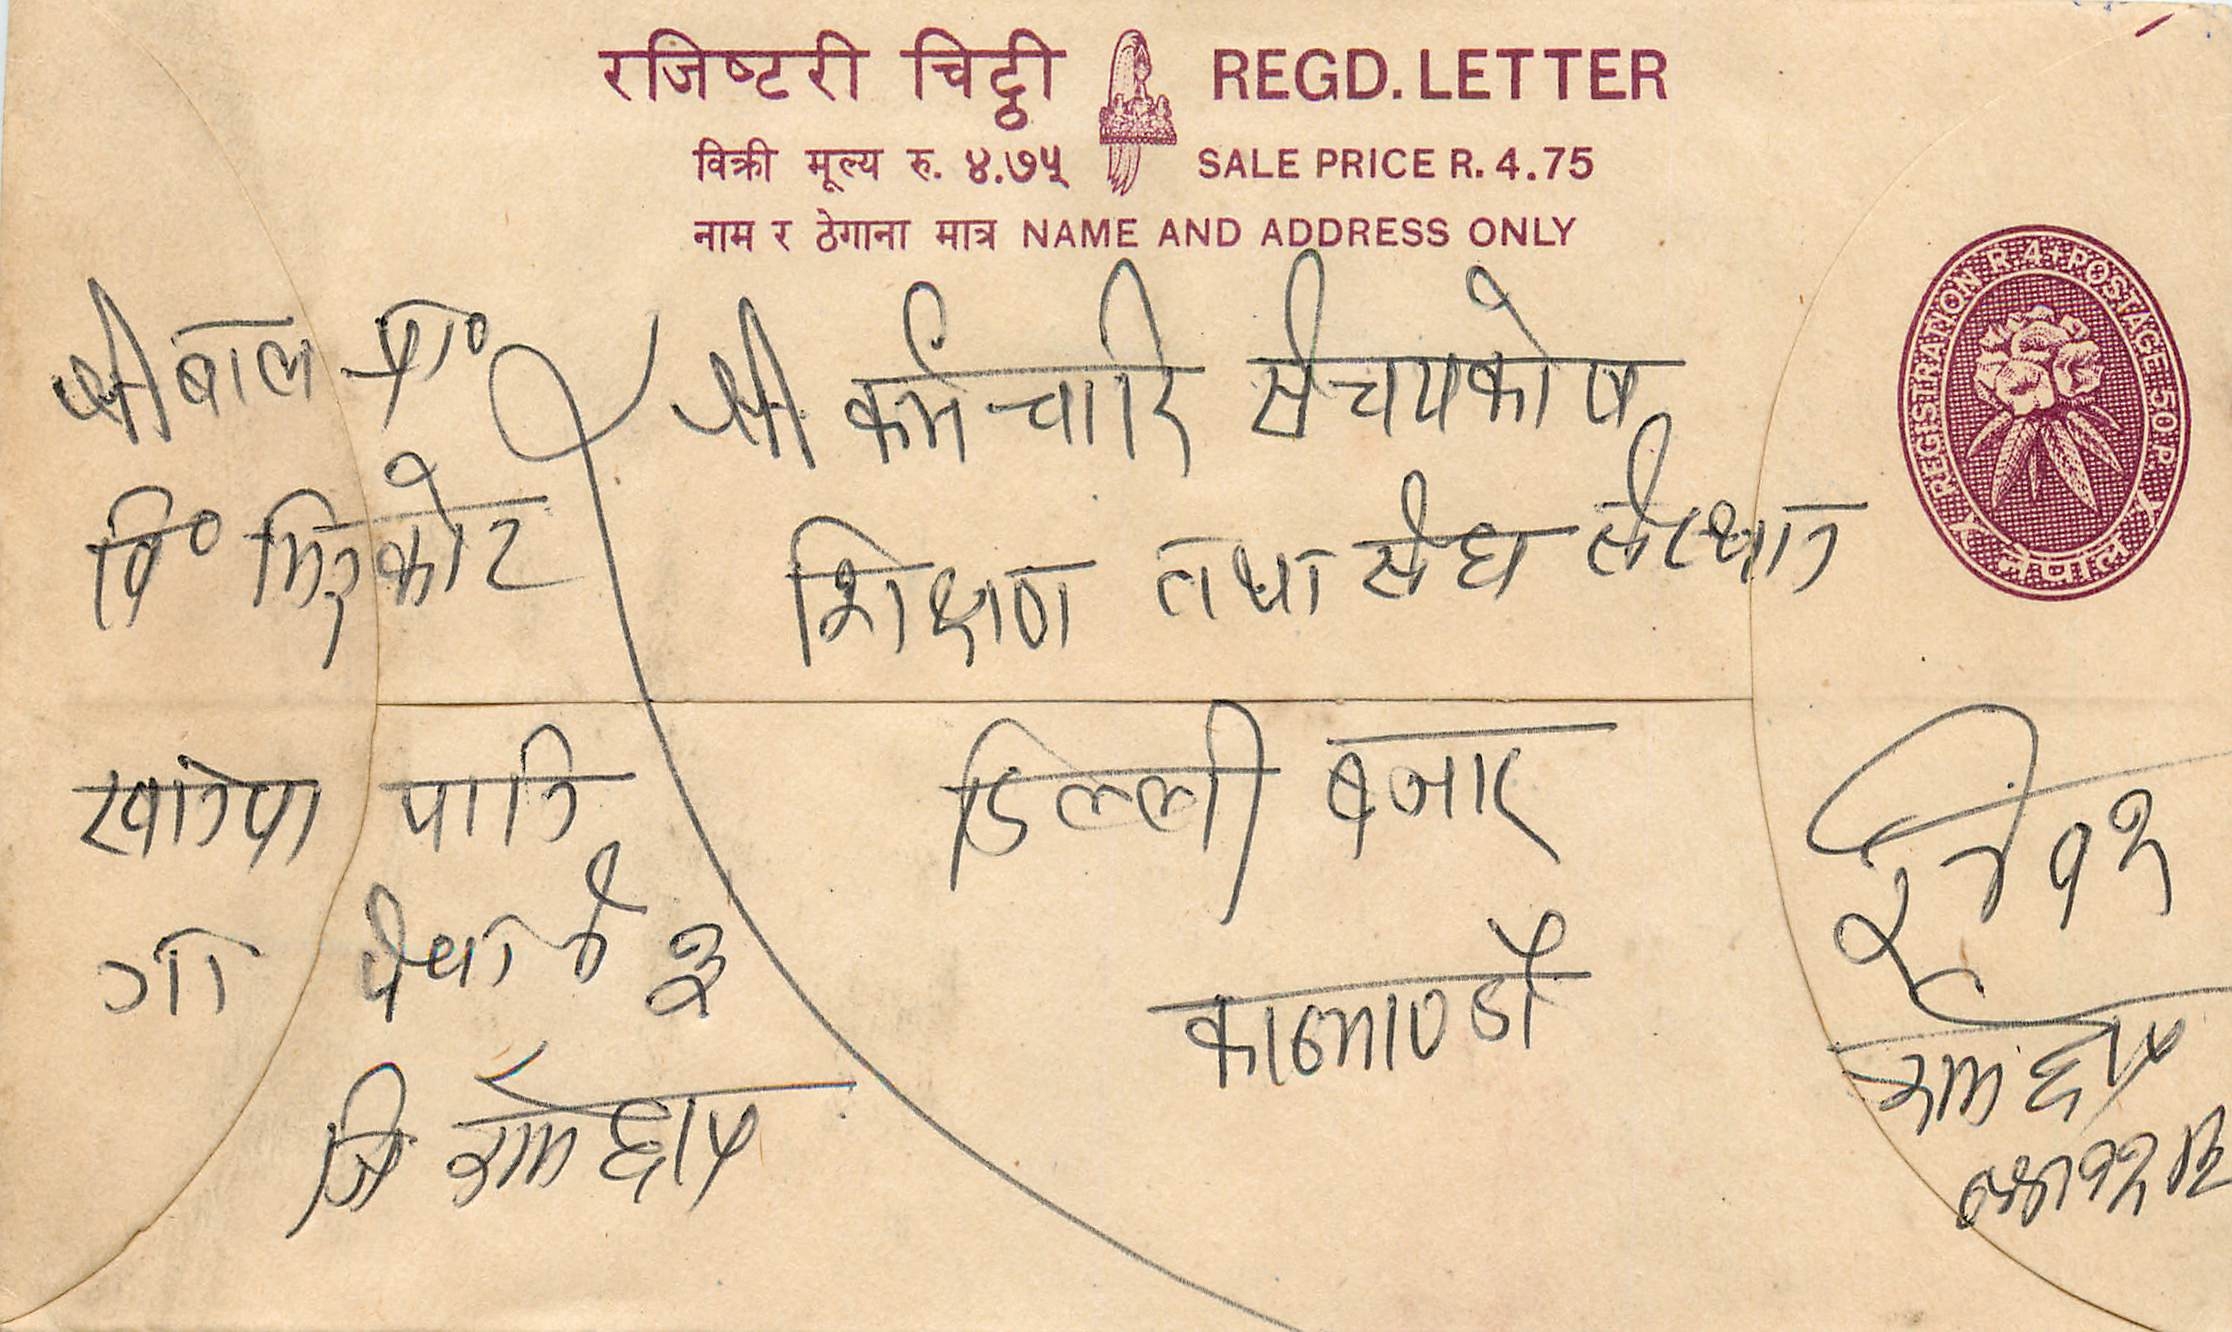 रजिष्टरी चिट्ठी REGD. LETTER
विक्री मूल्य रु. ४.७५ SALE PRICE R. 4.75
नाम र ठेगाना मात्र NAME AND ADDRESS ONLY
REGISTRATION R. 4 + POSTAGE 50 P.
नेपाल
श्री कर्मचारि संचयकोष
शिक्षण तथा संघ संस्थान
डिल्ली बजार
काठमाण्डौ
श्री बाल प्रा०
वि०
पानि
गा ३
जि रामेछाप
रामेछाप